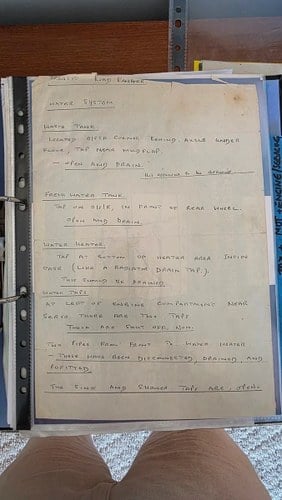 WATER SYSTEM.
WASTE TANK.
LOCATED O/S/R CORNER BEHIND AXLE UNDER
FLOOR, TAP NEAR MUDFLAP.
- OPEN AND DRAIN.
THIS APPEARS TO BE
FRESH WATER TANK.
TAP ON O/S/R, IN FRONT OF REAR WHEEL.
OPEN AND DRAIN.
WATER HEATER.
TAP AT BOTTOM OF HEATER AREA INSIDE
(LIKE A RADIATOR DRAIN TAP.)
THIS SHOULD BE DRAINED.
WATER TAPS.
AT LEFT OF ENGINE COMPARTMENT NEAR
THERE ARE TWO TAPS
THESE ARE SHUT OFF NOW.
TWO PIPES FROM FRONT TO WATER HEATER
- THESE HAVE BEEN DISCONNECTED, DRAINED, AND
REFITTED
THE SINK AND SHOWER TAPS ARE OPEN.